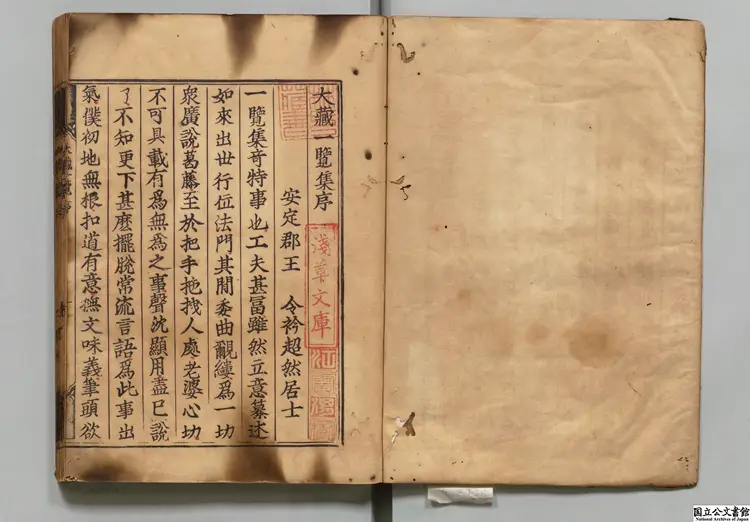 大藏一覽集序
安定郡王 令衿超然居士
一覽集竒特事也工夫甚冨雖然立意纂述
如來出世行位法門其閒委曲覼縷爲一切
衆廣說葛藤至於把手拖拽人處老婆心切
不可具載有爲無爲之事聲沈顯用盡已說
了不知更下甚麽擺脫常流言語爲此事出
氣僕初地無根扣道有意撫文味義筆頭欲
淺草文庫
国立公文書館
National Archives of Japan